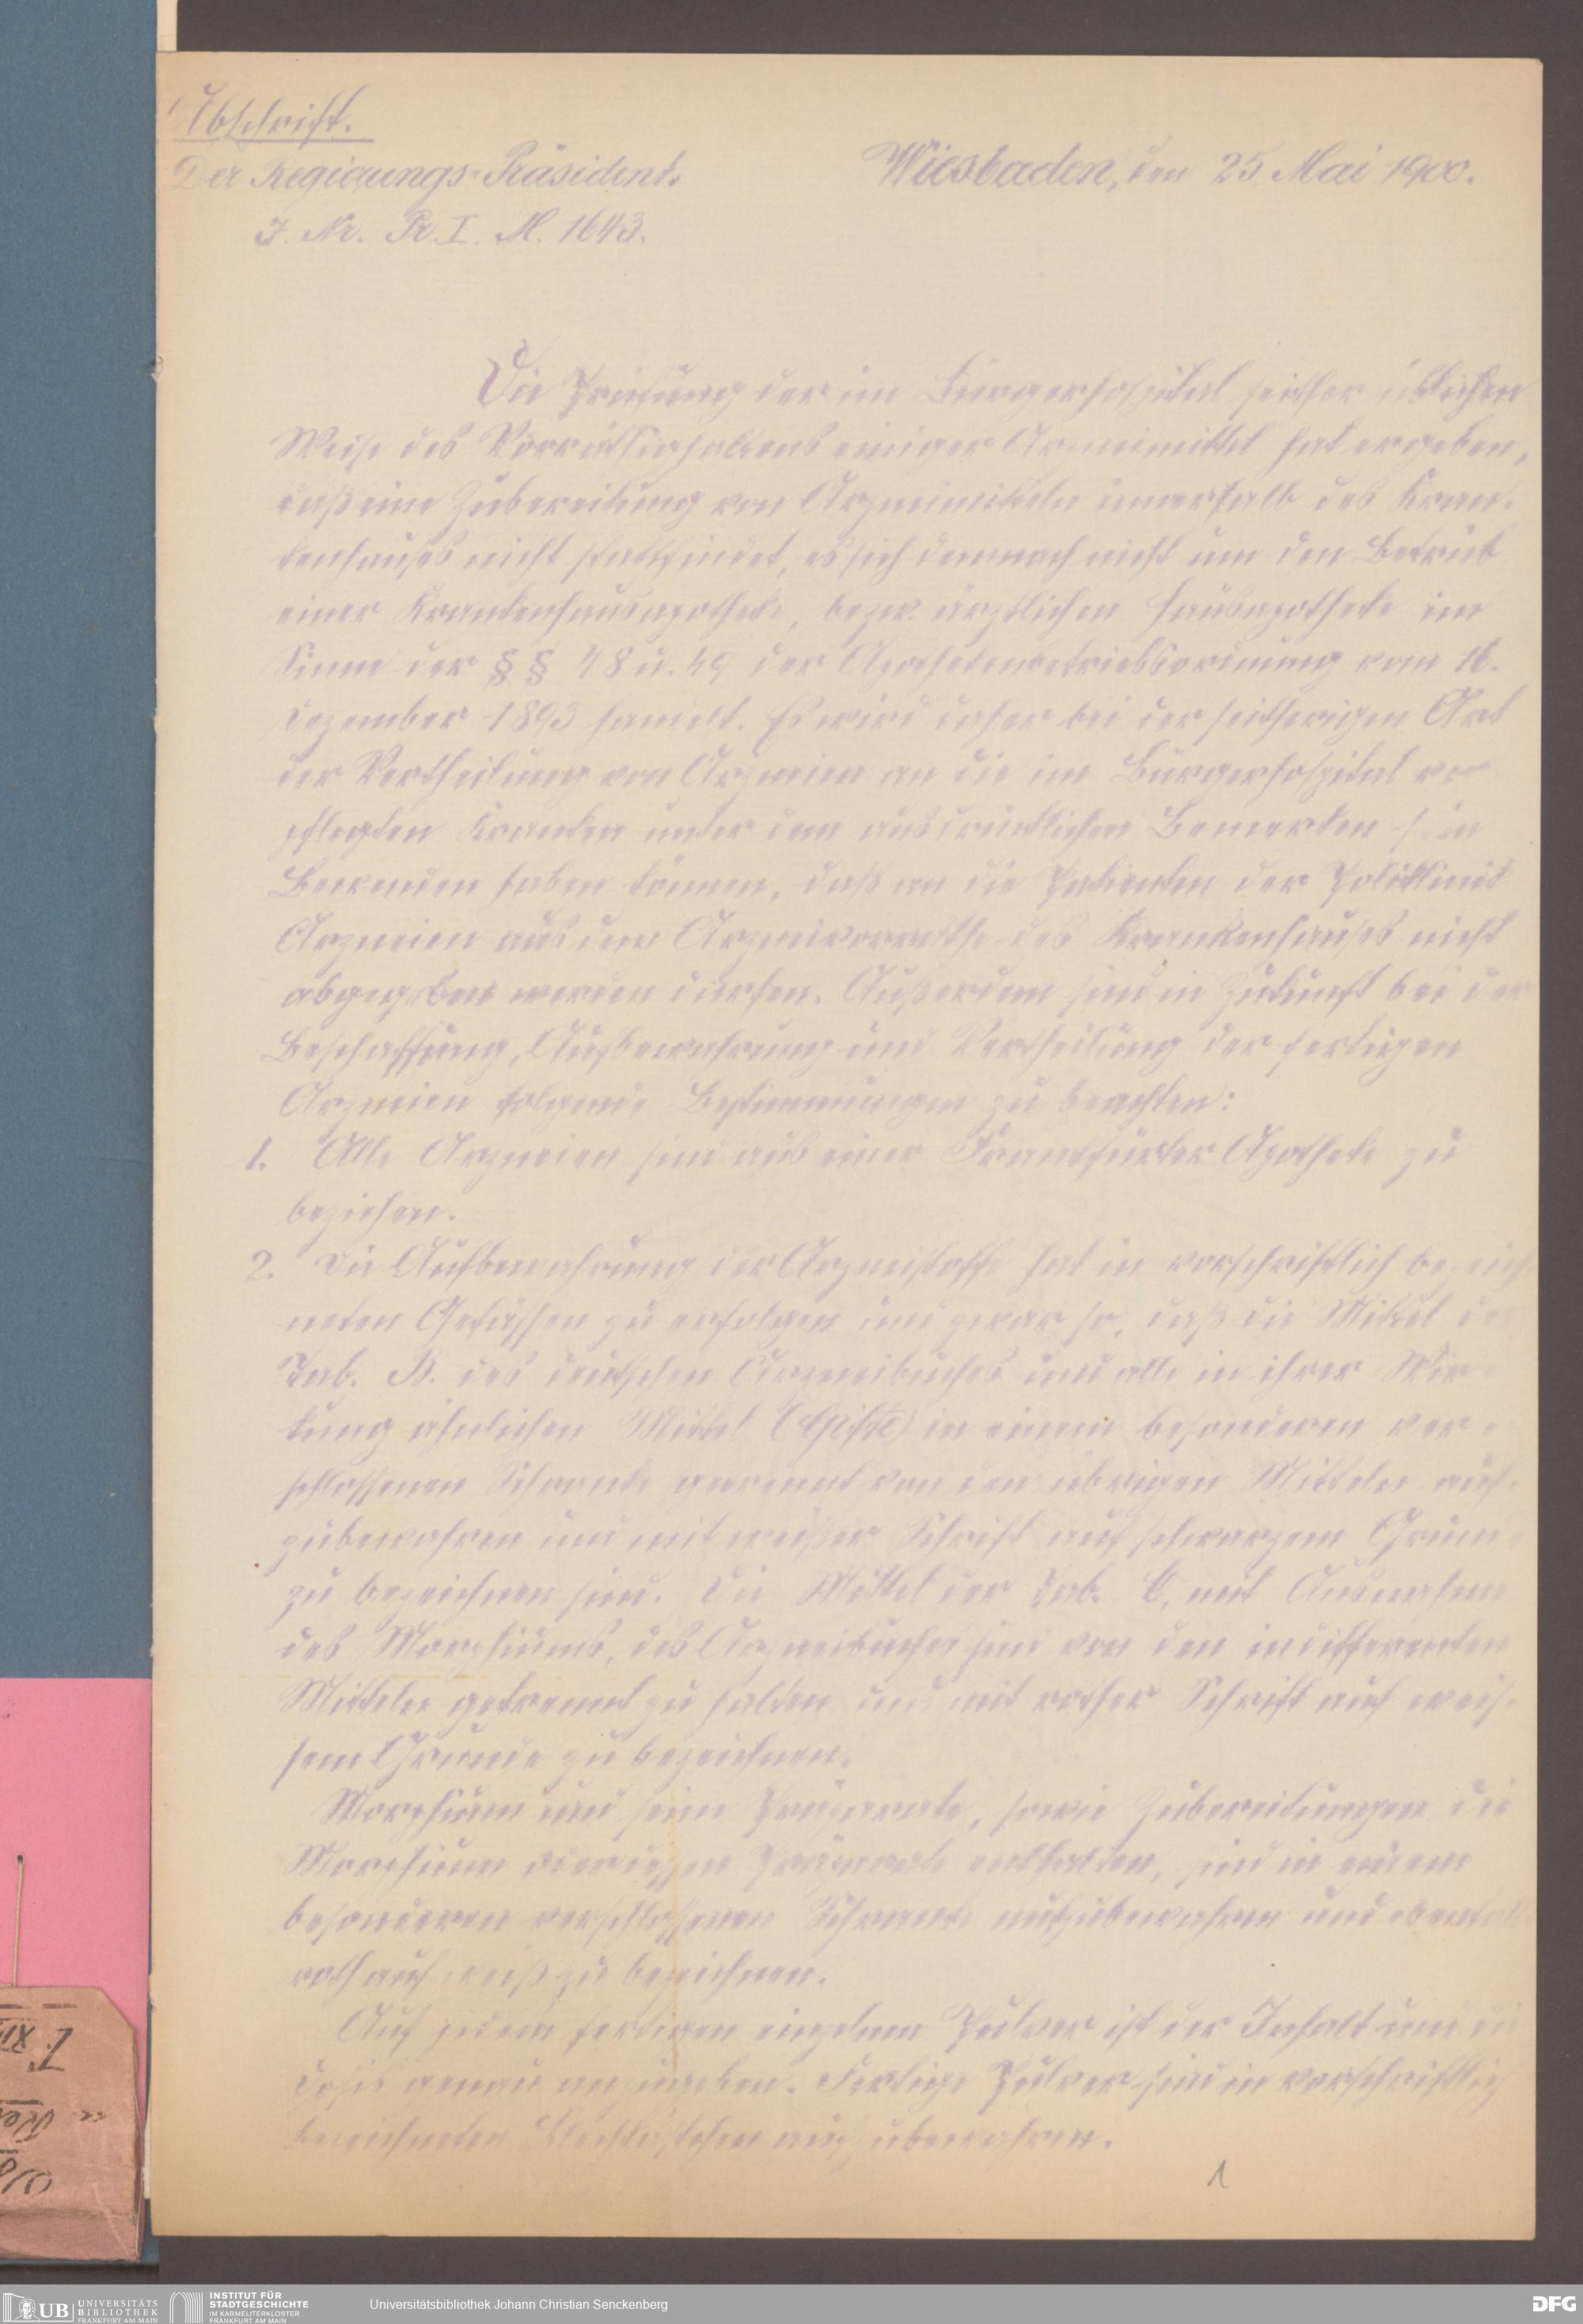 Abschrift.
Der Regierungs-Präsident.
Wiesbaden, den 25 Mai 1900.
J. Nr. Pr. I. M. 1643.
Die Prüfung der im Bürgerhospital seither üblichen
Weise des Vorräthighaltens einiger Arzneimittel hat ergeben,
daß eine Zubereitung von Arzneimitteln innerhalb des Kran-
kenhauses nicht stattfindet, es sich demnach nicht um den Betrieb
einer Krankenhausapotheke, bezw. ärztlichen Hausapotheke im
Sinne der §§ 48 u. 49 der Apothekenbetriebsordnung vom 16.
Dezember 1893 handelt. Es wird daher bei der seitherigen Art
der Vertheilung von Arzneien an die im Bürgerhospital ver
pflegten Kranken unter dem ausdrücklichen Bemerken sein
Bewenden haben können, daß an die Patienten der Poliklinik
Arzneien aus dem Arzneivorrathe des Krankenhauses nicht
abgegeben werden dürfen. Außerdem sind in Zukunft bei der
Beschaffung, Aufbewahrung und Vertheilung der fertigen
Arzneien folgende Bestimmungen zu beachten:
1. Alle Arzneien sind aus einer Frankfurter Apotheke zu
beziehen.
2. Die Aufbewahrung der Arzneistoffe hat in vorschriftlich bezeich
neten Gefässen zu erfolgen und zwar so, daß die Mittel der
Tab. B. des deutschen Arzneibuches und alle in ihrer Wir-
kung ähnlichen Mittel (Gifte) in einem besonderen ver-
schlossenen Schranke getrennt von den übrigen Mitteln auf-
zubewahren und mit weißer Schrift auf schwarzem Grunde
zu bezeichnen sind. Die Mittel der Tab. C, mit Ausnahme
des Morphiums, des Arzneibuches sind von den indifferenten
Mitteln getrennt zu halten und mit rother Schrift auf weis-
sem Grunde zu bezeichnen.
Morphium und seine Präparate, sowie Zubereitungen die
Morphium oder dessen Präparate enthalten, sind in einem
besonderen verschlossenen Schranke aufzubewahren und ebenfalls
roth auf weiß zu bezeichnen.
Auf jedem fertigen einzelnen Pulver ist der Inhalt und die
Dosis genau anzugeben. Fertige Pulver sind in vorschriftlich
bezeichneten aufzubewahren.
1
UB UNIVERSITÄTS
BIBLIOTHEK
FRANKFURT AM MAIN
INSTITUT FÜR
STADTGESCHICHTE
IM KARMELITERKLOSTER
FRANKFURT AM MAIN
Universitätsbibliothek Johann Christian Senckenberg
DFG